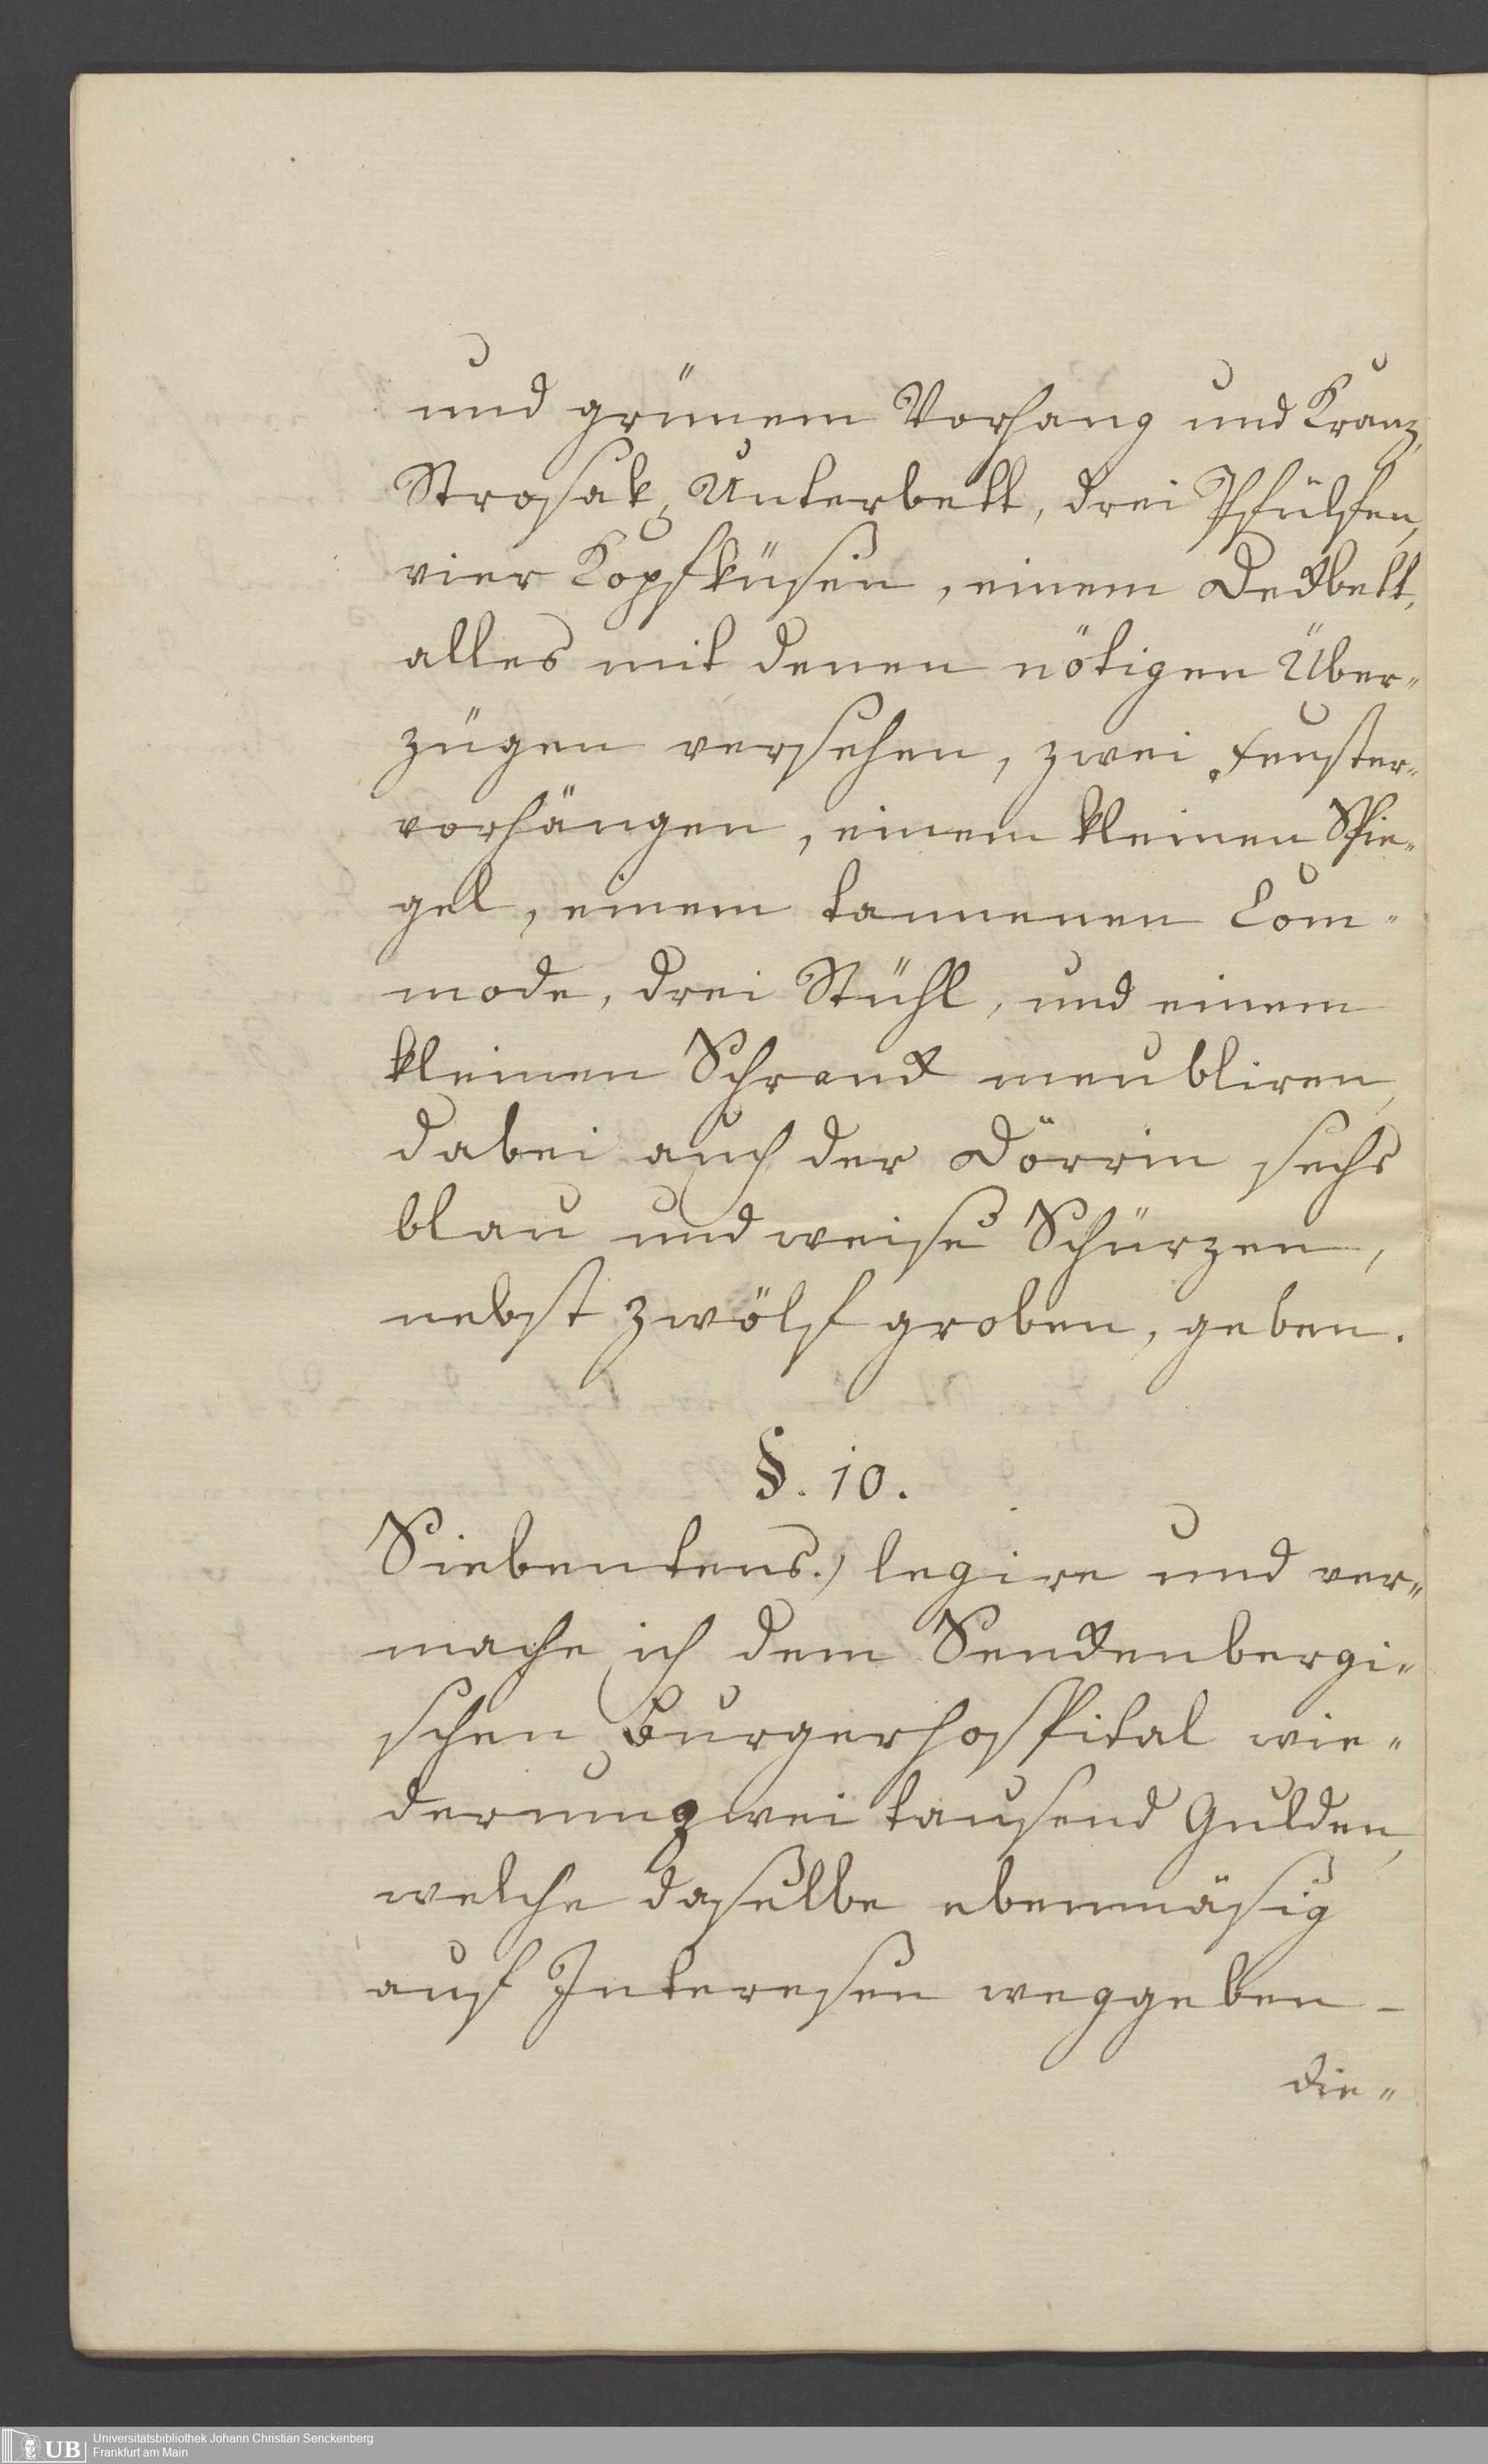 und grünem Vorhang und Kranz,
Strosak, Unterbett, drei Pfülfen,
vier Kopfküsen, einem Deckbett,
alles mit denen nötigen Über„
zügen versehen, zwei Fenster„
vorhängen, einem kleinen Spie„
gel, einem tannenen Com„
mode, drei Stühl, und einem
kleinen Schranck meubliren,
dabei auch der Dörrin sechs
blau und weise Schürzen,
nebst zwölf groben, geben.
§. 10.
Siebentens.) legire und ver„
mache ich dem Senckenbergi„
schen Burgerhospital wie„
derum zwei tausend Gulden,
welche daselbe ebenmäsig
auf Interesen weggeben –
die„
UB
Universitätsbibliothek Johann Christian Senckenberg
Frankfurt am Main